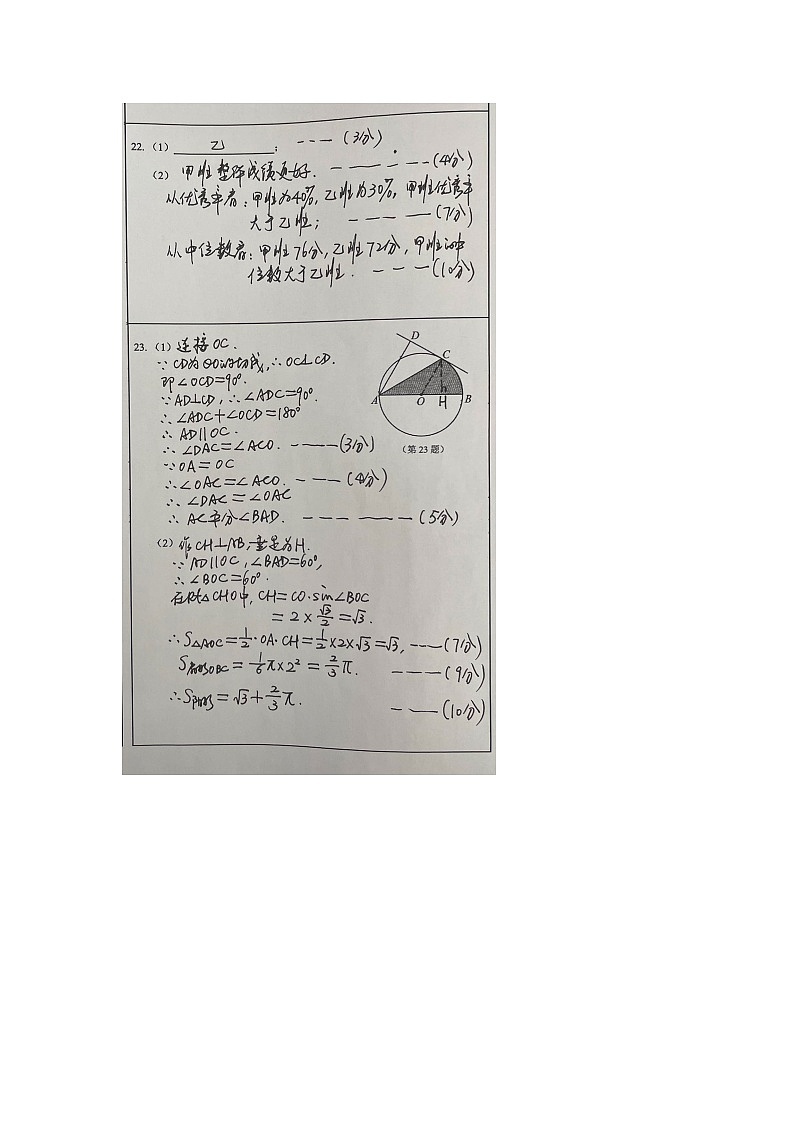 22.（1） 乙 ； ---（3分）
（2） 甲班整体成绩更好. ------（4分）
从优秀率看：甲班为40%，乙班为30%，甲班优秀率
大于乙班； ----（7分）
从中位数看：甲班76分，乙班72分，甲班的中
位数大于乙班. ---（10分）
23.（1）连接OC.
∵CD为⊙O的切线，∴OC⊥CD.
即∠OCD=90°.
∵AD⊥CD，∴∠ADC=90°.
∴∠ADC+∠OCD=180°
∴AD∥OC.
∴∠DAC=∠ACO. ----（3分）
∵OA=OC
∴∠OAC=∠ACO. ---（4分）
∴∠DAC=∠OAC
∴AC平分∠BAD. ------（5分）
D
C
A
O
H
B
（第23题）
（2）作CH⊥AB，垂足为H.
∵AD∥OC，∠BAD=60°，
∴∠BOC=60°.
在Rt△CHO中，CH=CO·sin∠BOC
=2×√3/2=√3.
∴S△AOC=1/2·OA·CH=1/2×2×√3=√3， ---（7分）
S扇形OBC=1/6π×2²=2/3π. ----（9分）
∴S阴影=√3+2/3π. ---（10分）